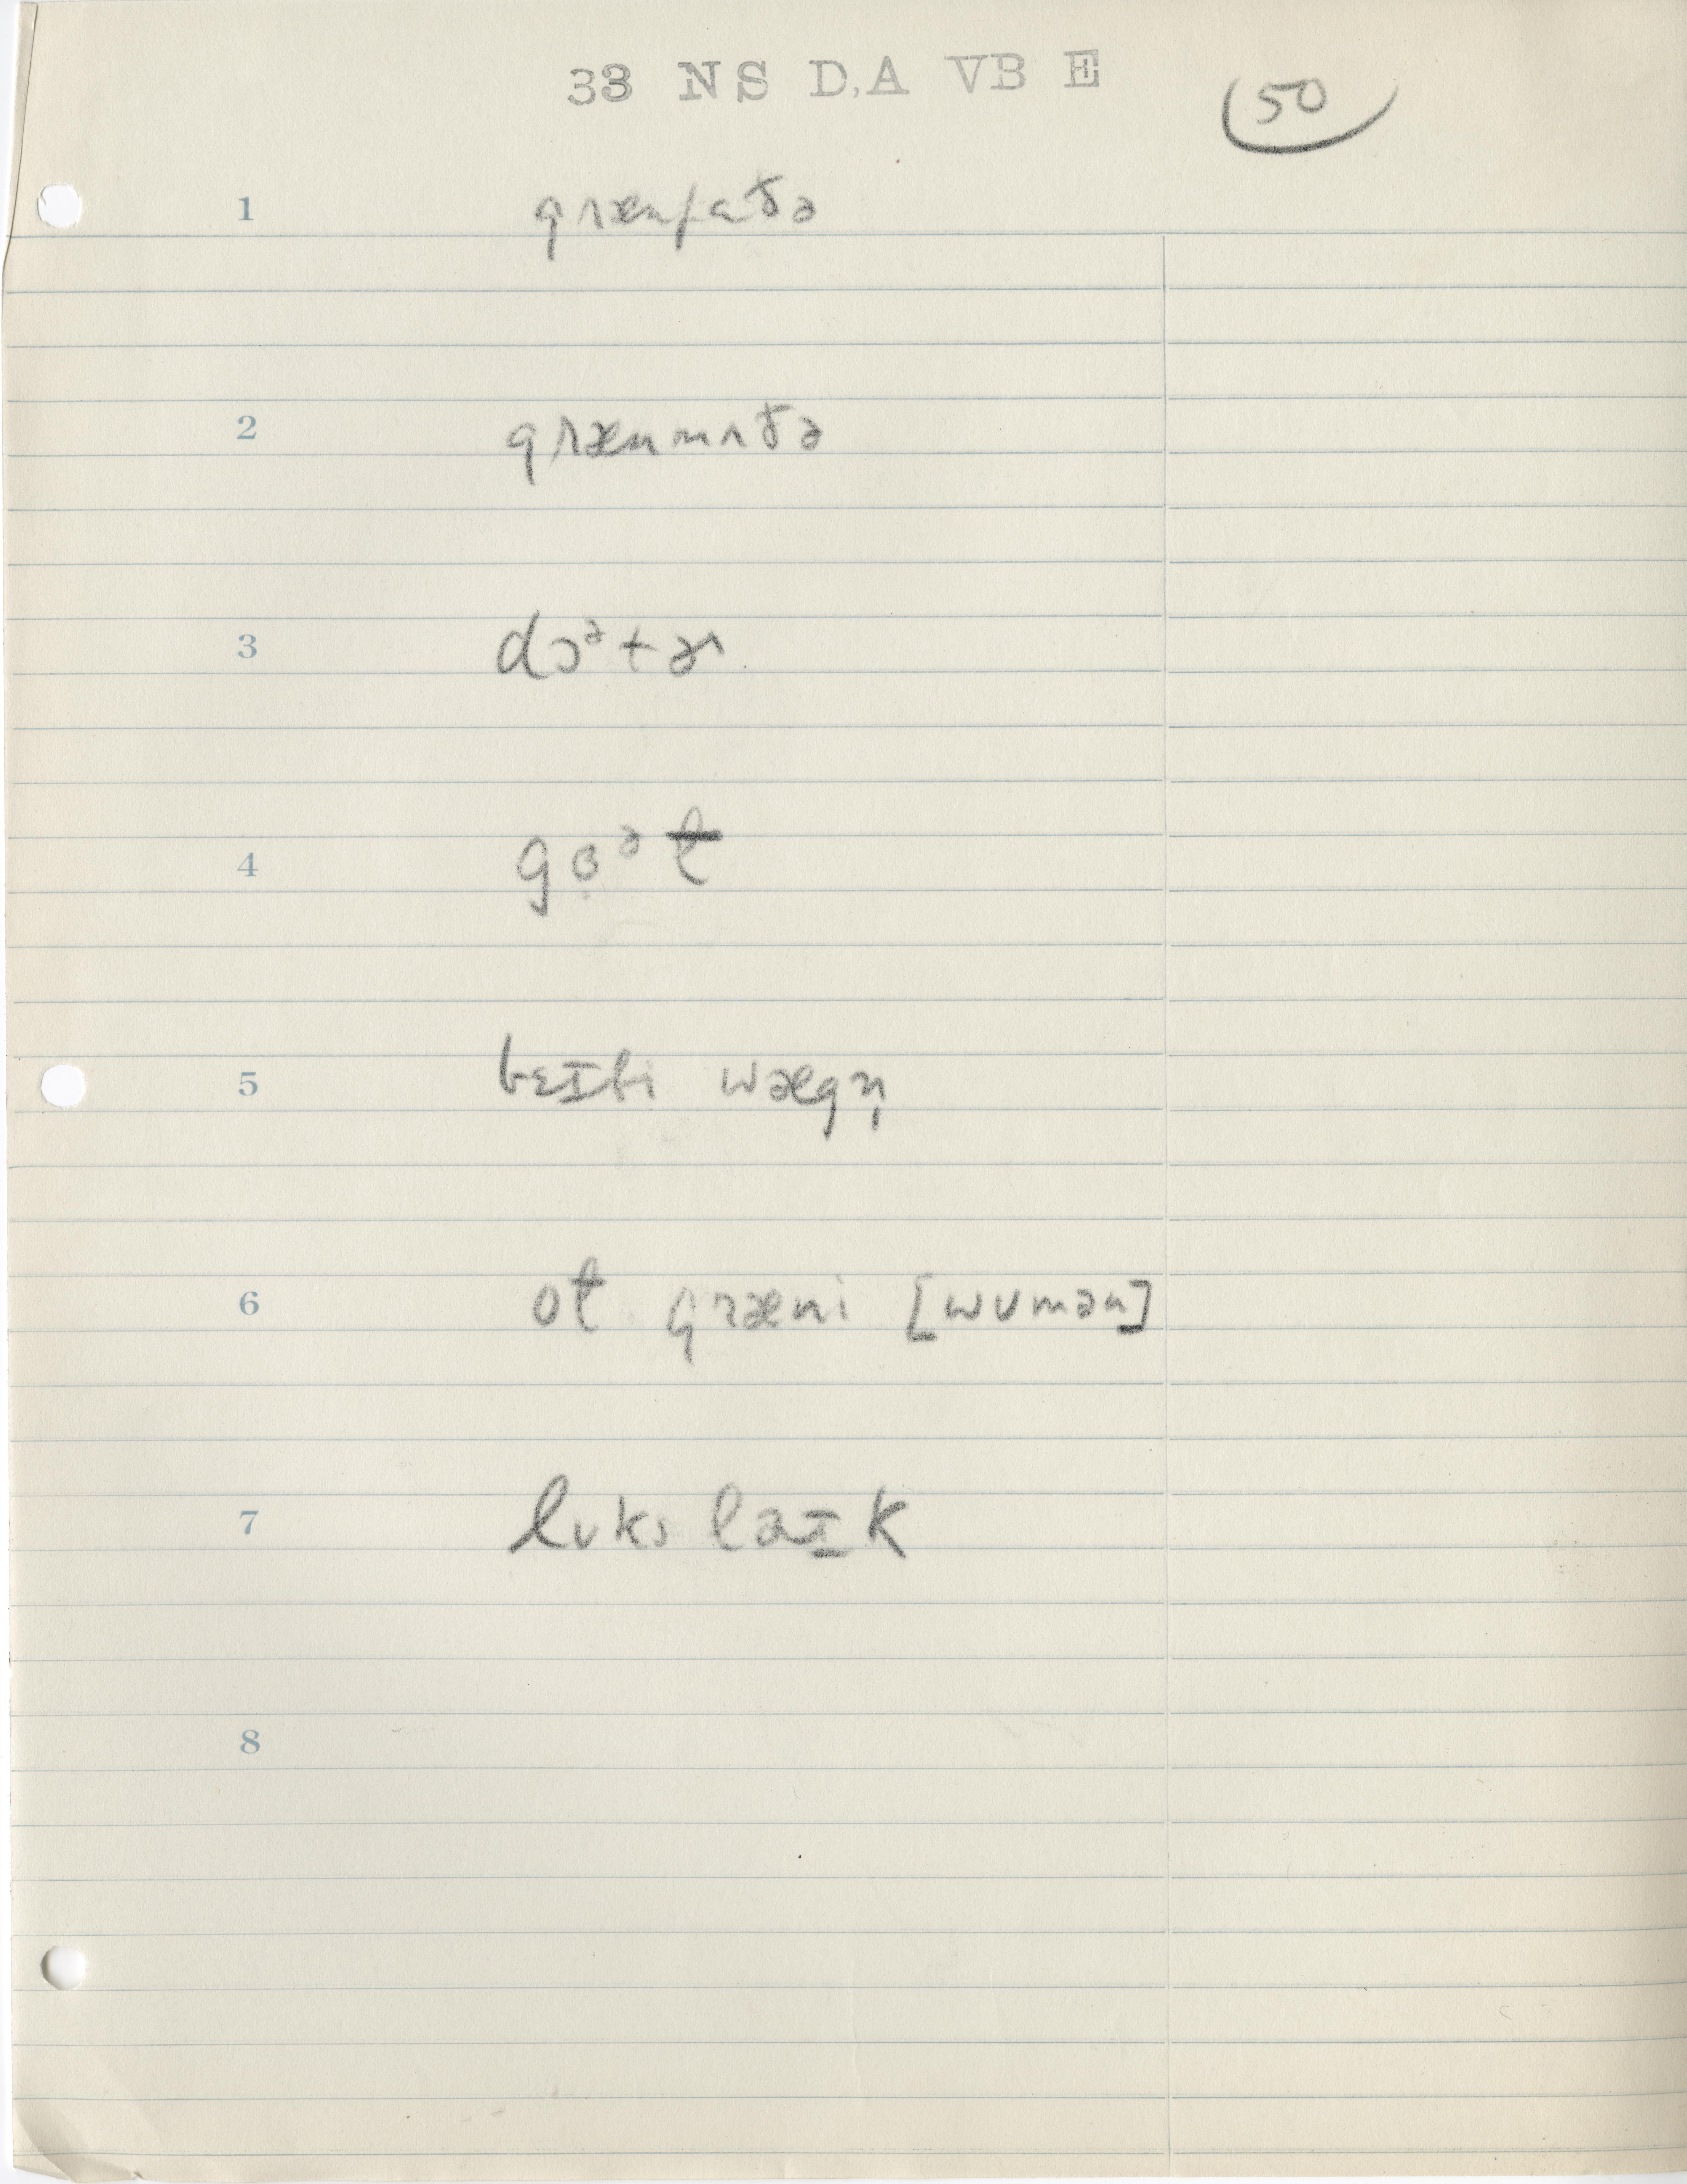 33 NS D,A VB E
50
1 grænfaðə
2 grænmʌðə
3 dɔᵊtər
4 gɜᵊɫ
5 bɛɪbi wægn̩
6 oɫ græni [wumən]
7 lʊks laɪk
8